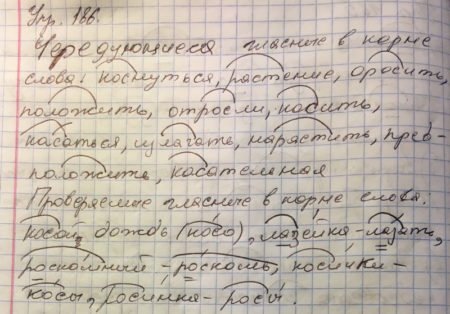 Упр. 186.
Чередующиеся гласные в корне
слова: коснуться, растение, оросить,
положить, отросли, косить,
касаться, излагать, нарастить, пред-
положить, касательная
Проверяемые гласные в корне слова:
косой, дождь (косо), лазейка - лазать,
роскошный - роскошь, косички -
косы, росинка - росы.